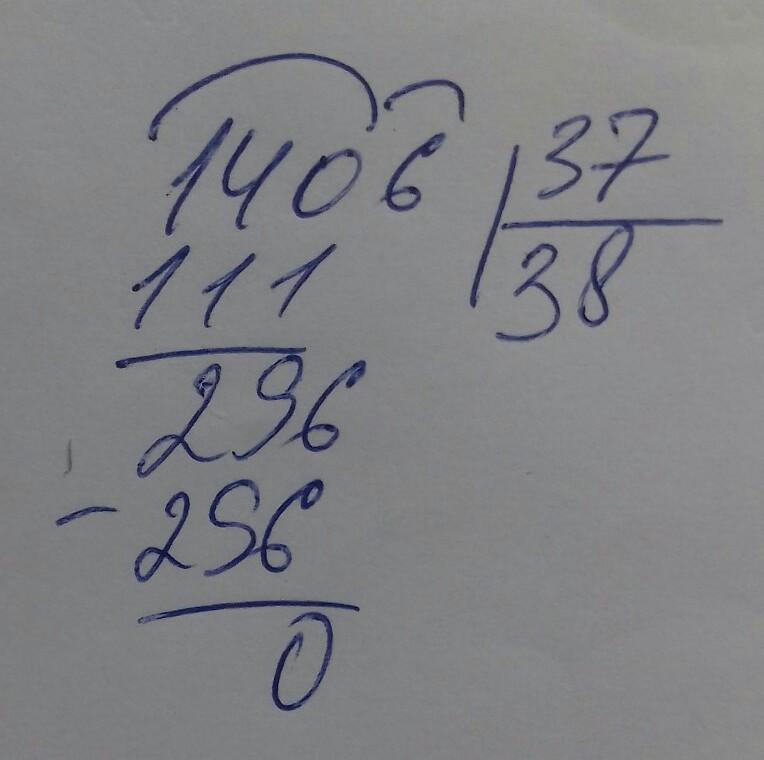 1406 37
38
111
296
- 296
0